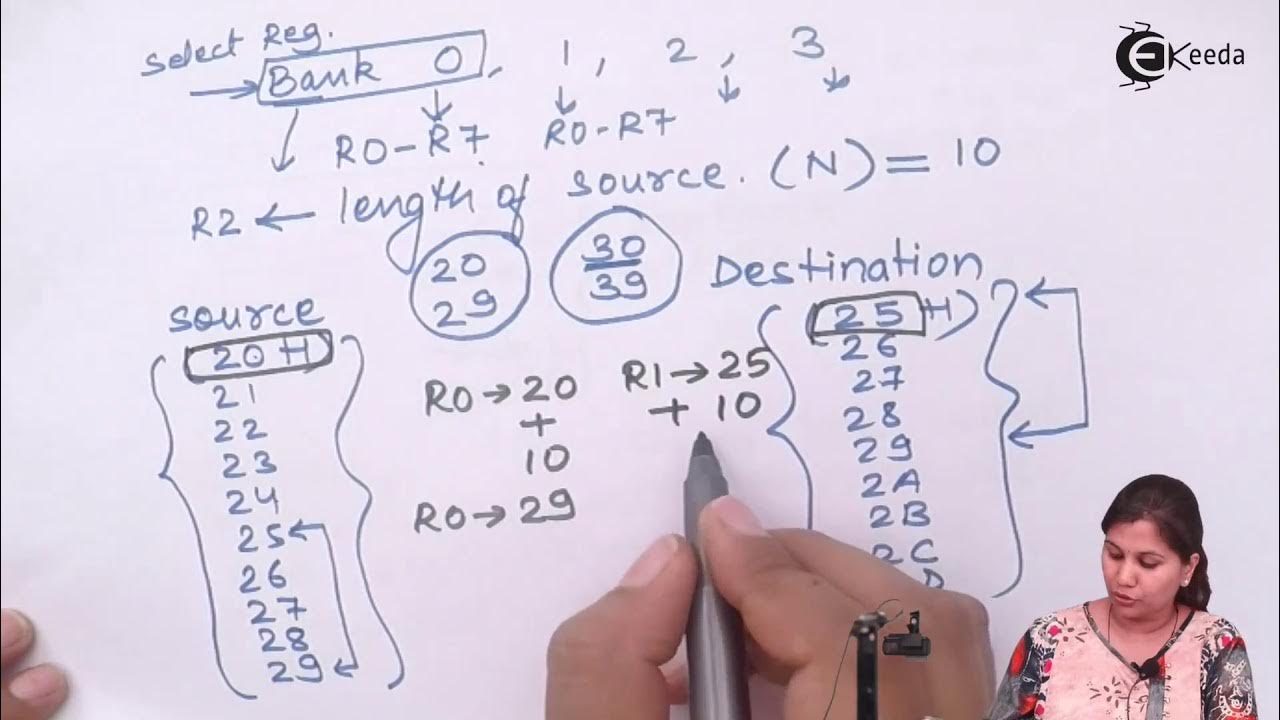 Select Reg.
Bank 0, 1, 2, 3
R0-R7. R0-R7
R2 ← length of source. (N) = 10
20
29
30
39
Destination
source
20 H
21
22
23
24
25
26
27
28
29
R0→20
+
10
R0→29
R1→25
+ 10
25 H)
26
27
28
29
2A
2B
2C
D
EKeeda